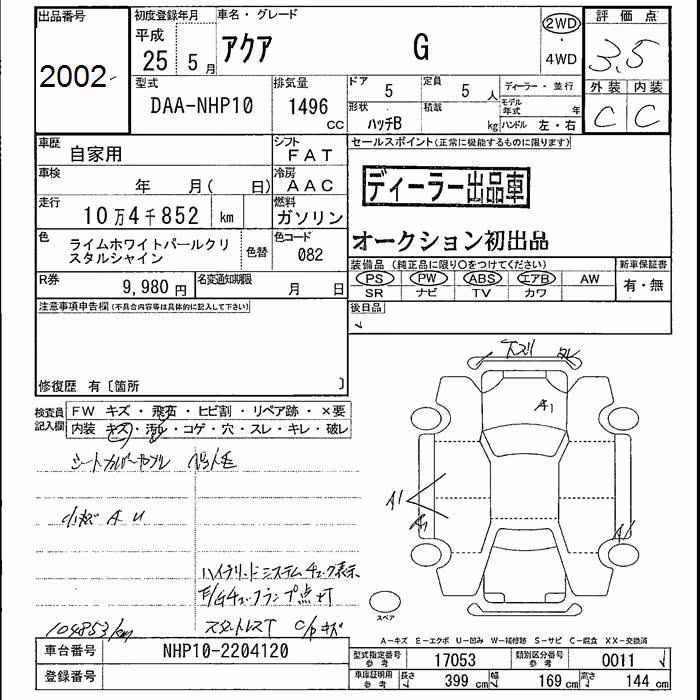 出品番号
2002
初度登録年月
平成
25年5月
車名・グレード
アクア G
2WD
・
4WD
評価点
3.5
外装 内装
C C
型式
DAA-NHP10
排気量
1496
CC
ドア
5
定員
5人
ディーラー・並行
形状
ハッチB
積載
kg
モデル年式
年
ハンドル 左・右
車歴
自家用
シフト
FAT
車検
年 月( 日)
冷房
AAC
走行
10万4千852 km
燃料
ガソリン
色
ライムホワイトパールクリ
スタルシャイン
色替
色コード
082
R券
9,980円
名変通知期限
月 日
セールスポイント(正常に機能するものに限ります)
ディーラー出品車
オークション初出品
装備品(純正品に限り〇をつけてください)
PS PW ABS エアB AW
SR ナビ TV カワ
新車保証書
有・無
注意事項申告欄(不具合内容等は具体的に記入して下さい)
後日品
修復歴 有〔箇所 〕
検査員記入欄
FW キズ・飛石・ヒビ割・リペア跡・×要
内装 キズ・汚レ・コゲ・穴・スレ・キレ・破レ
シートカバーヤブレ ペット毛
小キズ A U
ハイブリッドシステムチェック表示
E/Gチェックランプ点灯
104853km
C/Pキズ
A1
A1
A1
A1
スペア
A-キズ E-エクボ U-凹み W-補修跡 S-サビ C-腐食 XX-交換済
車台番号
NHP10-2204120
登録番号
型式指定番号
参考
17053
類別区分番号
参考
0011
車庫証明用
参考
長さ
399 cm
幅
169 cm
高さ
144 cm